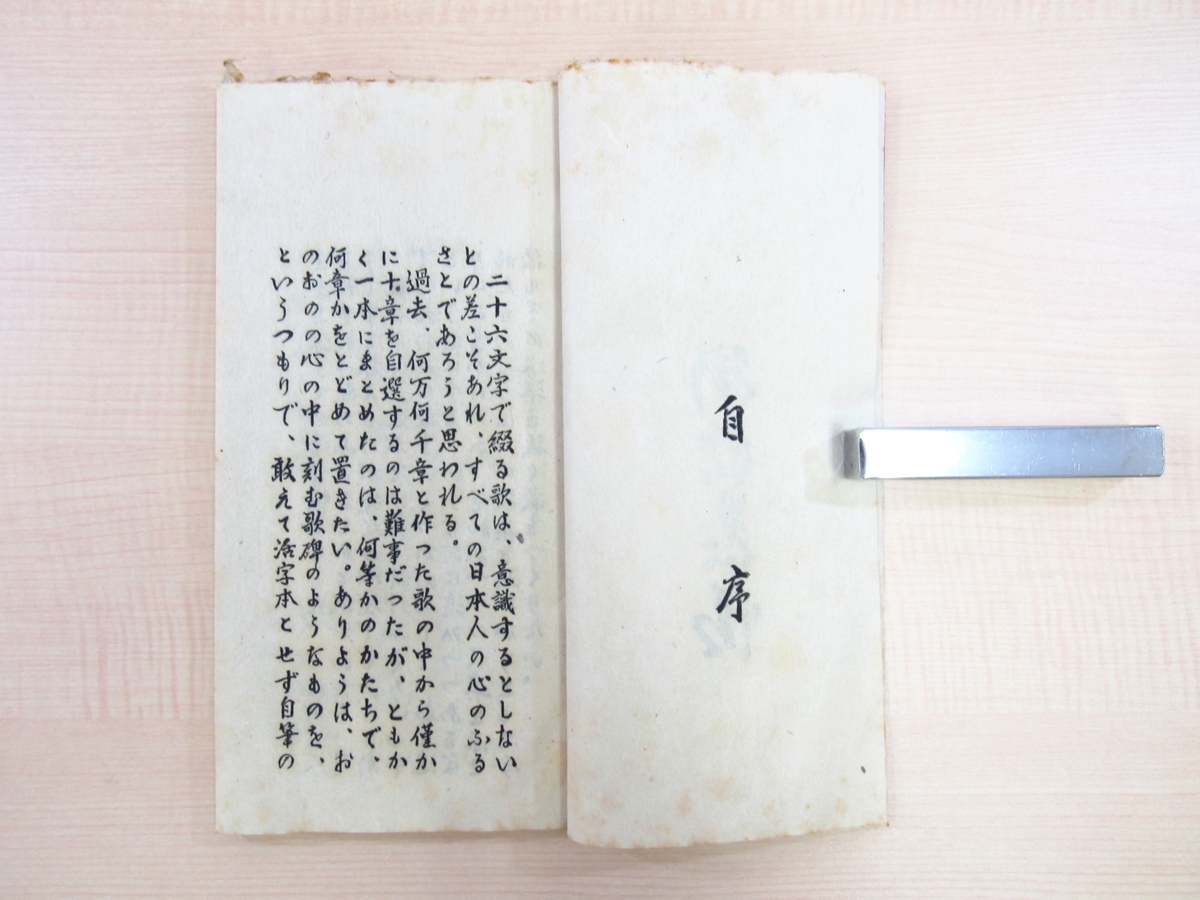 自序
二十六文字で綴る歌は、意識するとしない
との差こそあれ、すべての日本人の心のふる
さとであろうと思われる。
過去、何万何千章と作った歌の中から僅か
に十章を自選するのは難事だったが、ともか
く一本にまとめたのは、何等かのかたちで、
何章かをとどめて置きたい。ありようは、お
のおのの心の中に刻む歌碑のようなものを、
というつもりで、敢えて活字本とせず自筆の